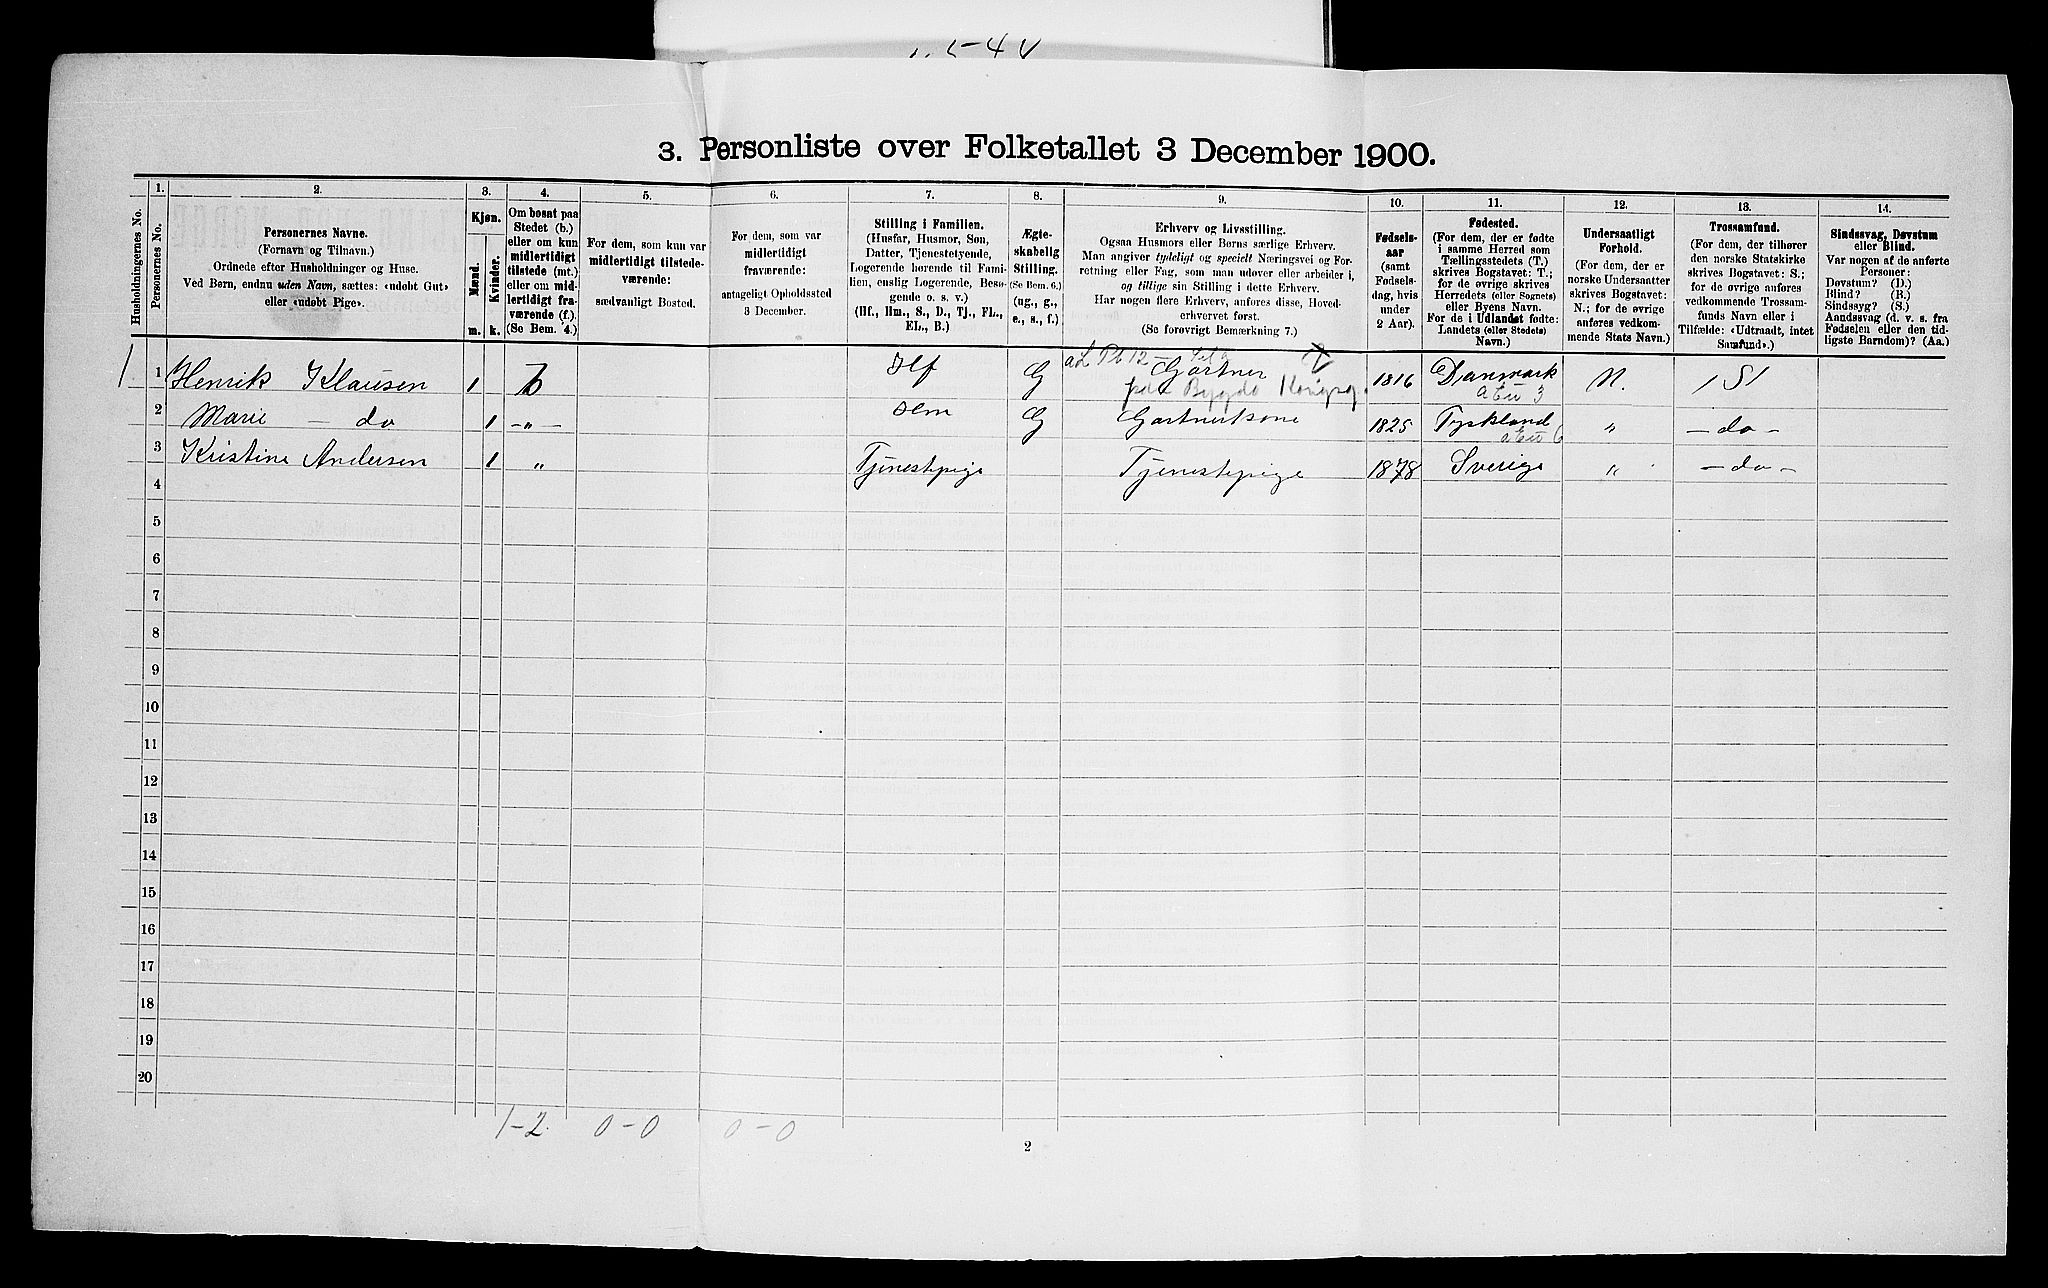 3. Personliste over Folketallet 3 December 1900.
1. 2. 3. 4. 5. 6. 7. 8. 9. 10. 11. 12. 13. 14.
Husholdningernes No.
Personernes No.
Personernes Navne.
(Fornavn og Tilnavn.)
Ordnede efter Husholdninger og Huse.
Ved Børn, endnu uden Navn, sættes: «udøbt Gut»
eller «udøbt Pige».
Kjøn.
Mænd. Kvinder.
m. k.
Om bosat paa
Stedet (b.)
eller om kun
midlertidigt
tilstede (mt.)
eller om mid-
lertidigt fra-
værende (f.).
(Se Bem. 4.)
For dem, som kun var
midlertidigt tilstede-
værende:
sædvanligt Bosted.
For dem, som var
midlertidigt
fraværende:
antageligt Opholdssted
3 December.
Stilling i Familien.
(Husfar, Husmor, Søn,
Datter, Tjenestetyende,
Logerende hørende til Fami-
lien, enslig Logerende, Besø-
gende o. s. v.)
(Hf., Hm., S., D., Tj., FL.,
EL., B.)
Ægte-
skabelig
Stilling.
(Se Bem. 6.)
(ug., g.,
e., s., f.)
Erhverv og Livsstilling.
Ogsaa Husmors eller Børns særlige Erhverv.
Man angiver tydeligt og specielt Næringsvei og For-
retning eller Fag, som man udøver eller arbeider i,
og tillige sin Stilling i dette Erhverv.
Har nogen flere Erhverv, anføres disse, Hoved-
erhvervet først.
(Se forøvrigt Bemærkning 7.)
Fødsels-
aar
(samt
Fødsels-
dag, hvis
under
2 Aar).
Fødested.
(For dem, der er fødte
i samme Herred som
Tællingsstedets (T.)
skrives Bogstavet: T.;
for de øvrige skrives
Herredets (eller Sognets)
eller Byens Navn.
For de i Udlandet fødte:
Landets (eller Stedets)
Navn.)
Undersaatligt
Forhold.
(For dem, der er
norske Undersaatter
skrives Bogstavet:
N.; for de øvrige
anføres vedkom-
mende Stats Navn.)
Trossamfund.
(For dem, der tilhører
den norske Statskirke
skrives Bogstavet: S.;
for de øvrige anføres
vedkommende Trossam-
funds Navn eller i
Tilfælde: «Udtraadt, intet
Samfund».)
Sindssvag, Døvstum
eller Blind.
Var nogen af de anførte
Personer:
Døvstum? (D.)
Blind? (B.)
Sindssyg? (S.)
Aandssvag (d. v. s. fra
Fødselen eller den tid-
ligste Barndom)? (Aa.)
1 1 Henrik Klausen 1 b Hf G Gartner 1816 Danmark N. S
2 Marie — do 1 — „ — Hm G Gartnerkone 1825 Tyskland „ — do —
3 Kristine Andersen 1 „ Tjenestepige Tjenestepige 1878 Sverige „ — do —
4
5
6
7
8
9
10
11
12
13
14
15
16
17
18
19
20
1-2 0-0 0-0
2